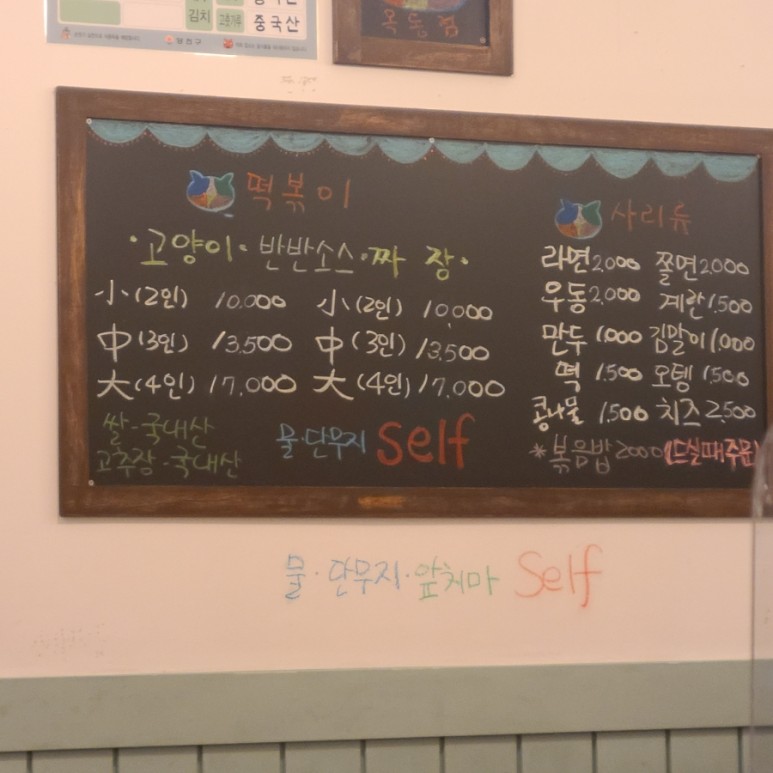 김치 고춧가루 중국산
당진구
목동점
떡볶이
·고양이· 반반소스·짜 장·
小(2인) 10,000 小(2인) 10,000
中(3인) 13,500 中(3인) 13,500
大(4인) 17,000 大(4인) 17,000
쌀-국내산
고추장-국내산
물·단무지 Self
사리류
라면 2,000 쫄면 2,000
우동 2,000 계란 1,500
만두 1,000 김말이 1,000
떡 1,500 오뎅 1,500
콩나물 1,500 치즈 2,500
*볶음밥 2000 (드실때 주문)
물·단무지·앞치마 Self